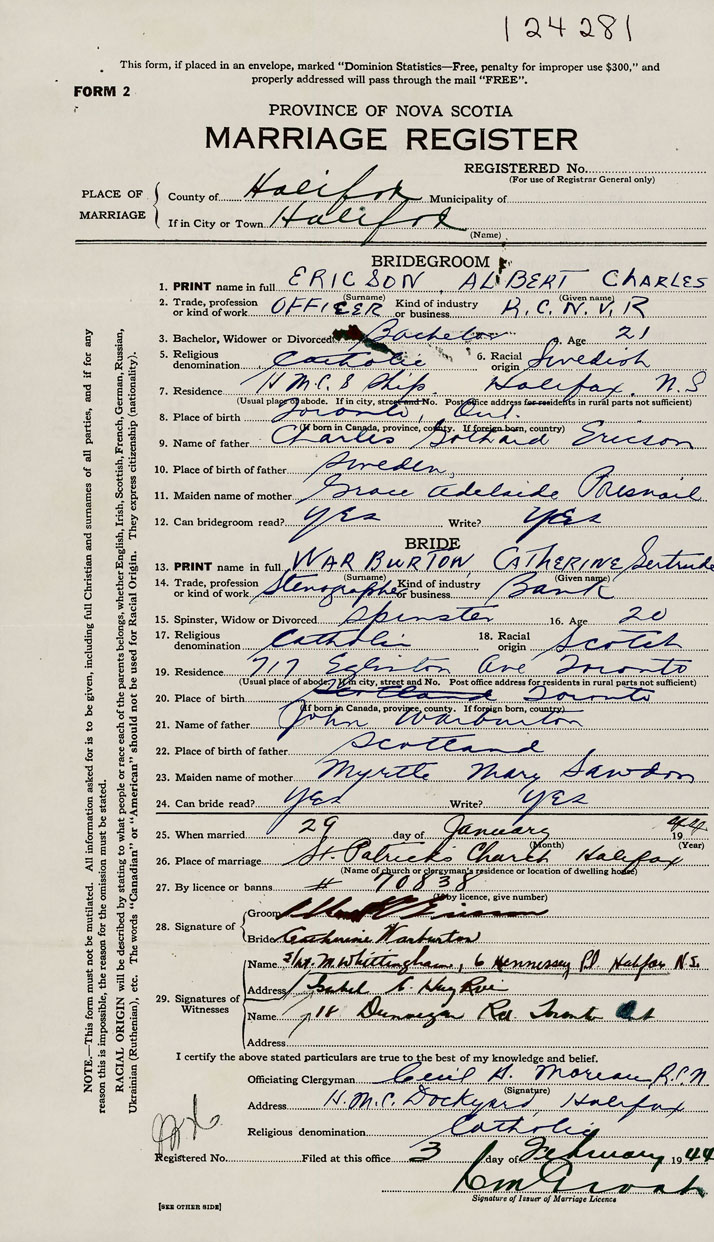 124281
This form, if placed in an envelope, marked "Dominion Statistics—Free, penalty for improper use $300," and
properly addressed will pass through the mail "FREE".
FORM 2
PROVINCE OF NOVA SCOTIA
MARRIAGE REGISTER
REGISTERED No.
(For use of Registrar General only)
PLACE OF MARRIAGE
County of Halifax Municipality of
If in City or Town Halifax
(Name)
BRIDEGROOM
1. PRINT name in full ERICSON ALBERT CHARLES
(Surname) (Given name)
2. Trade, profession or kind of work OFFICER Kind of industry or business R.C.N.V.R
3. Bachelor, Widower or Divorced Bachelor 4. Age 21
5. Religious denomination Catholic 6. Racial origin Swedish
7. Residence H.M.C.S Ship. Halifax, N.S
(Usual place of abode. If in city, street and No. Post office address for residents in rural parts not sufficient)
8. Place of birth Toronto, Ont.
(If born in Canada, province, county. If foreign born, country)
9. Name of father Charles Ericson
10. Place of birth of father Sweden
11. Maiden name of mother Grace Adelaide Presnail
12. Can bridegroom read? Yes Write? Yes
BRIDE
13. PRINT name in full WARBURTON CATHERINE Gertrude
(Surname) (Given name)
14. Trade, profession or kind of work Stenographer Kind of industry or business Bank
15. Spinster, Widow or Divorced Spinster 16. Age 20
17. Religious denomination Catholic 18. Racial origin Scotch
19. Residence 717 Eglinton Ave Toronto
(Usual place of abode. If in city, street and No. Post office address for residents in rural parts not sufficient)
20. Place of birth Scotland Toronto
(If born in Canada, province, county. If foreign born, country)
21. Name of father John Warburton
22. Place of birth of father Scotland
23. Maiden name of mother Myrtle Mary Sawdon
24. Can bride read? Yes Write? Yes
25. When married 29 day of January 1944
(Month) (Year)
26. Place of marriage St. Patrick's Church Halifax
(Name of church or clergyman's residence or location of dwelling house)
27. By licence or banns # 70838
(If by licence, give number)
28. Signature of
Groom Albert C Ericson
Bride Catherine Warburton
29. Signatures of Witnesses
Name M. Whittingham, 6 Hennessey Pl Halifax N.S.
Address Isabel
Name 718 Dunvegan Rd Toronto Ont
Address
I certify the above stated particulars are true to the best of my knowledge and belief.
Officiating Clergyman Cecil A. Moreau R.C.N
(Signature)
Address H.M.C. Dockyard, Halifax
Religious denomination Catholic
Registered No. Filed at this office 3 day of February 1944
Signature of Issuer of Marriage Licence
[SEE OTHER SIDE]
NOTE.—This form must not be mutilated. All information asked for is to be given, including full Christian and surnames of all parties, and if for any
reason this is impossible, the reason for the omission must be stated.
RACIAL ORIGIN will be described by stating to what people or race each of the parents belongs, whether English, Irish, Scottish, French, German, Russian,
Ukrainian (Ruthenian), etc. The words "Canadian" or "American" should not be used for Racial Origin. They express citizenship (nationality).